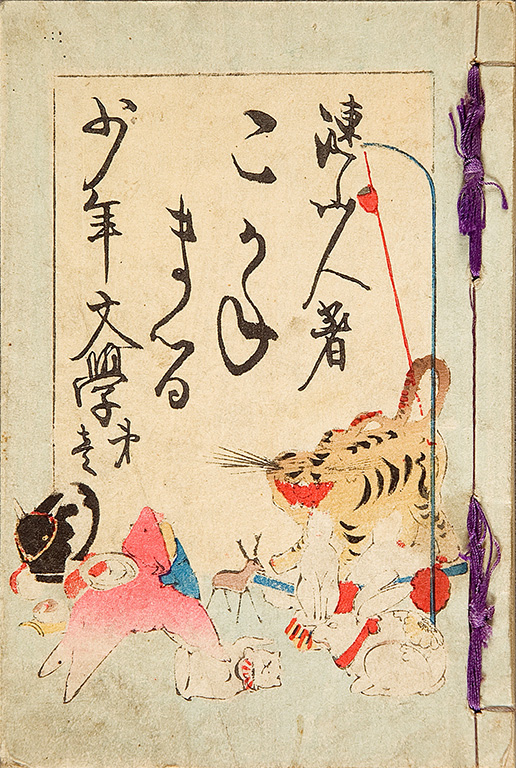 漣山人著
こがね
まる
少年文學第
壹